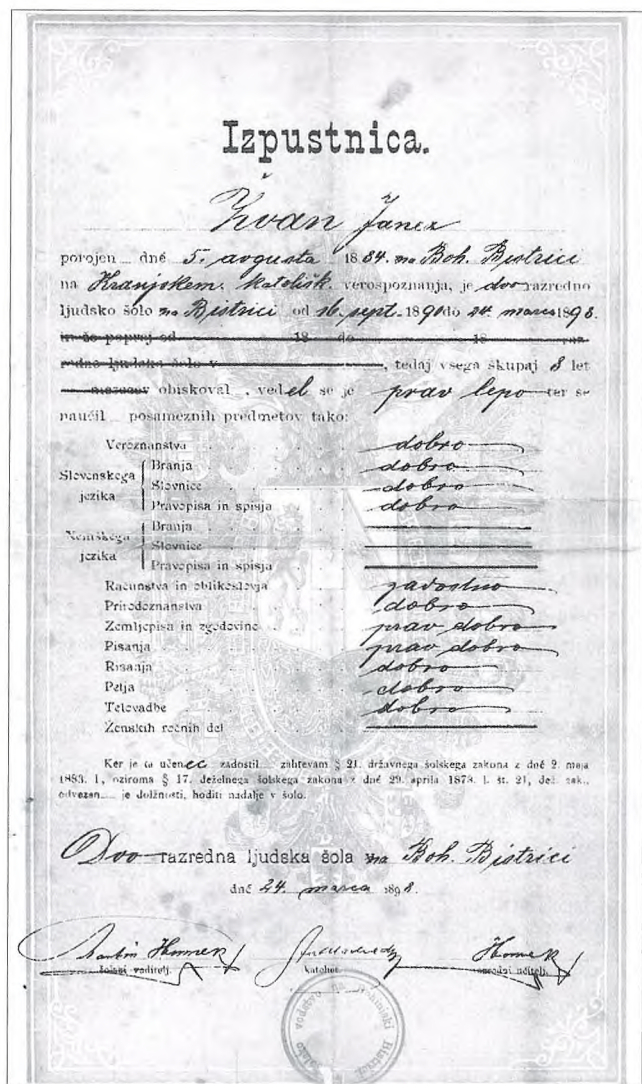 Izpustnica.
Žvan Janez
porojen dné 5. avgusta 1884. na Boh. Bistrici
na Kranjskem, katolišk. verospoznanja, je dvorazredno
ljudsko šolo na Bistrici od 16. sept. 1890 do 24. marca 1898.
in še poprej od 18 do 18 na
redno ljudsko šolo v , tedaj vsega skupaj 8 let
mesecev obiskoval , vedel se je prav lepo ter se
naučil posameznih predmetov tako:
Veroznanstva dobro
Slovenskega jezika
Branja dobro
Slovnice dobro
Pravopisa in spisja dobro
Nemškega jezika
Branja
Slovnice
Pravopisa in spisja
Računstva in oblikoslovja zadostno
Prirodoznanstva dobro
Zemljepisa in zgodovine prav dobro
Pisanja prav dobro
Risanja dobro
Petja dobro
Telovadbe dobro
Ženskih ročnih del
Ker je ta učenec zadostil zahtevam § 21. državnega šolskega zakona z dné 2. maja
1883. l., oziroma § 17. deželnega šolskega zakona z dné 29. aprila 1873. l. št. 21, dež. zak.,
odvezan je dolžnosti, hoditi nadalje v šolo.
Dvorazredna ljudska šola na Boh. Bistrici
dné 24. marca 1898.
Martin Humek Humek
šolski voditelj. katehet. razredni učitelj.